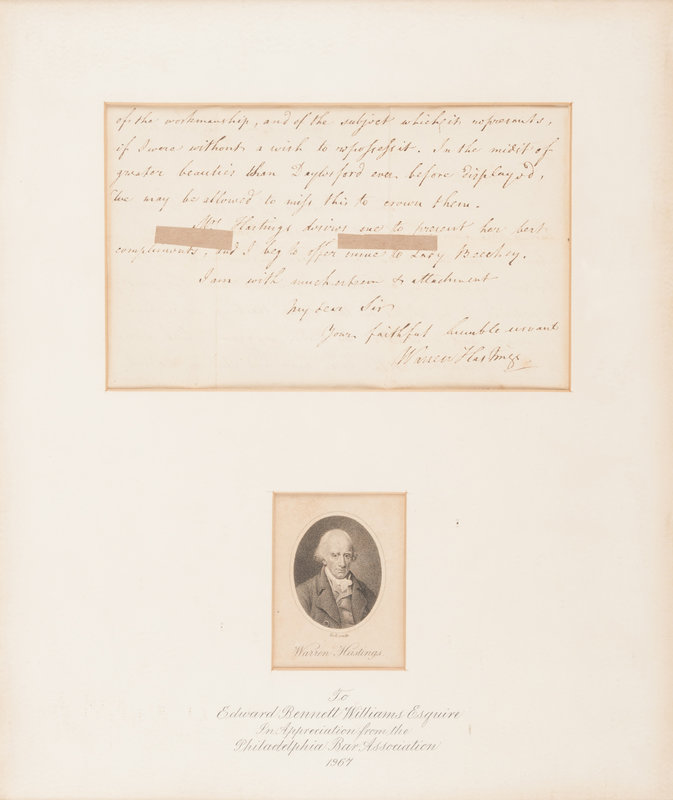 of the workmanship, and of the subject which it represents,
if I were without a wish to repossess it. In the midst of
greater beauties than Daylesford ever before displayed,
we may be allowed to miss this to crown them.
Mrs Hastings desires me to present her best
compliments, and I beg to offer mine to Lady Beechey.
I am with much esteem & attachment
My dear Sir
Your faithful humble servant
Warren Hastings
Warren Hastings
To
Edward Bennett Williams Esquire
In Appreciation from the
Philadelphia Bar Association
1967